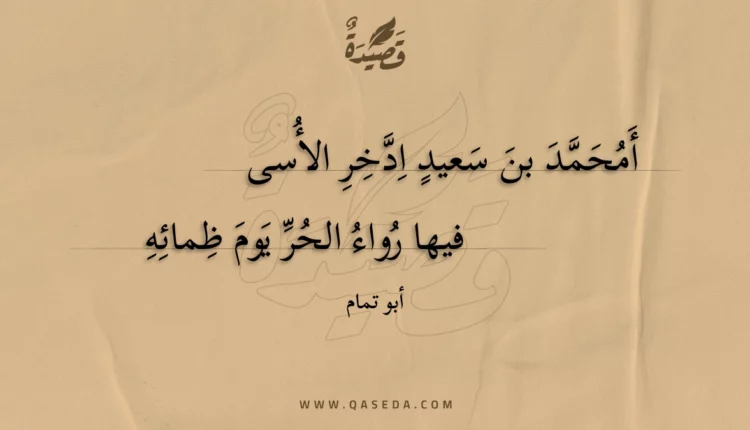 قَصِيْدَةٌ
أَمُحَمَّدَ بنَ سَعيدٍ اِدَّخِرِ الأُسى
فيها رُواءُ الحُرِّ يَومَ ظِمائِهِ
أبو تمام
WWW.QASEDA.COM